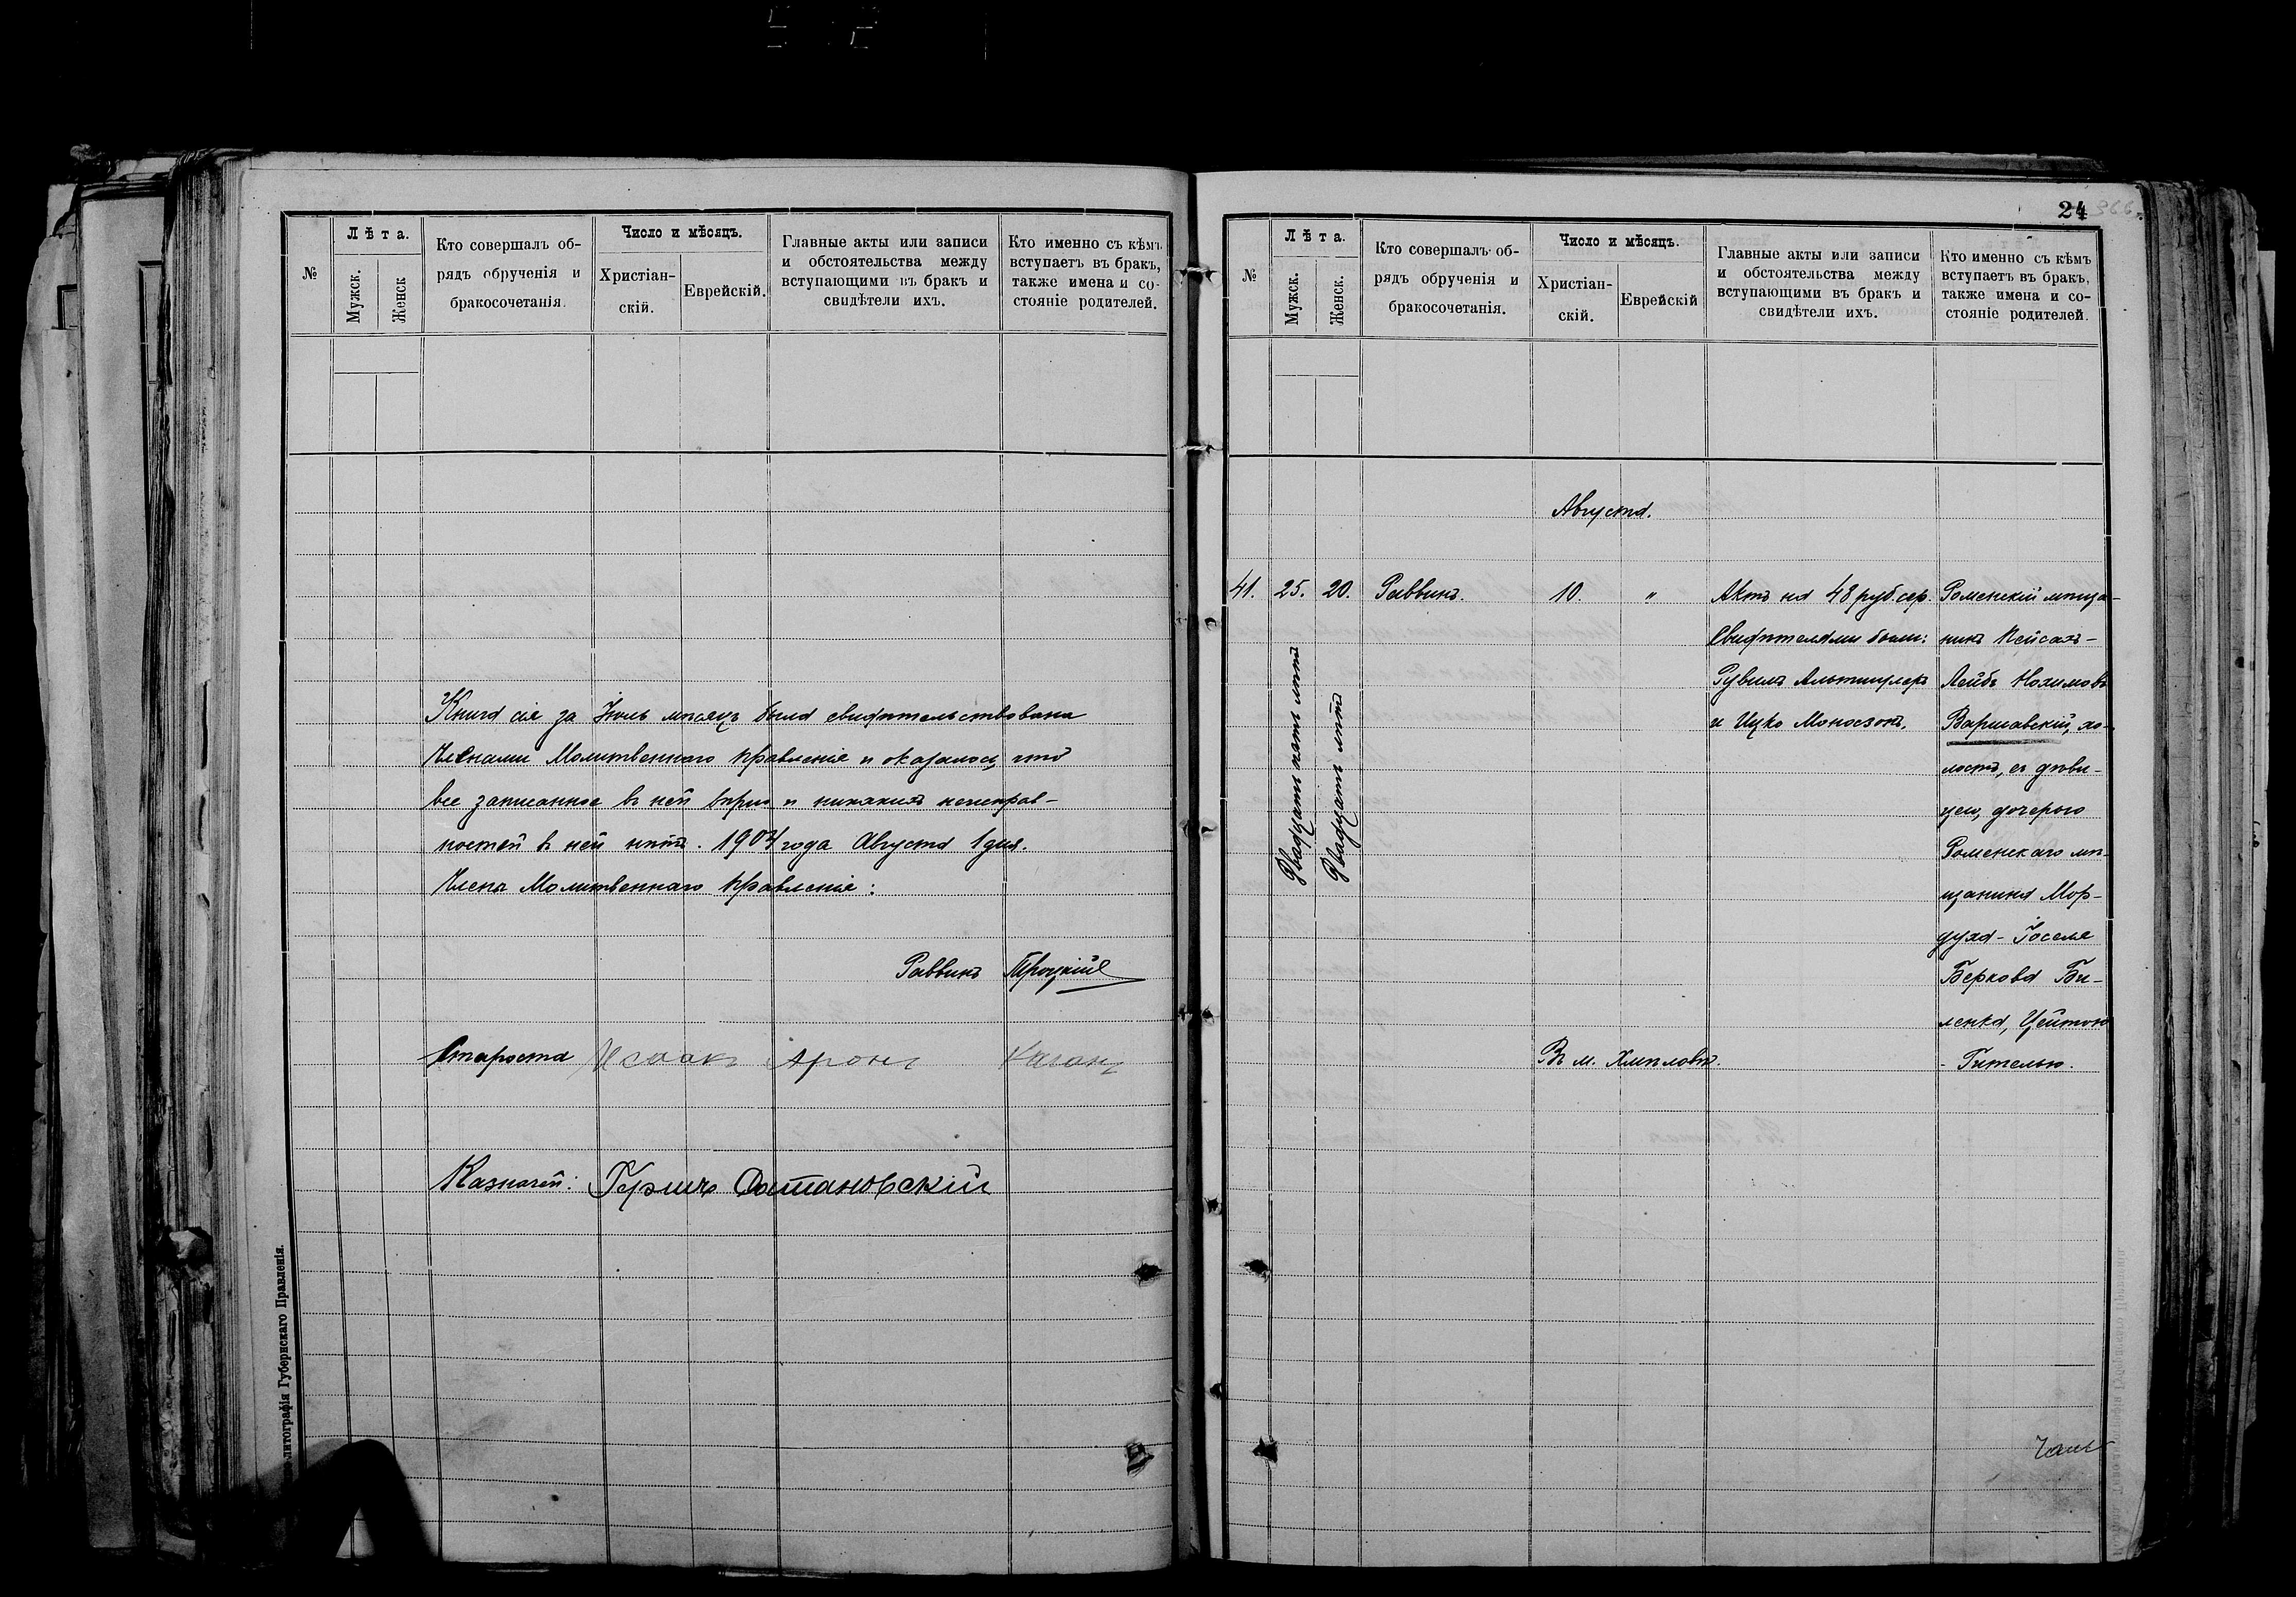 №
Лѣта.
Мужск.
Женск
Кто совершалъ об-
рядъ обрученія и
бракосочетанія.
Число и мѣсяцъ.
Христіан-
скій.
Еврейскій.
Главные акты или записи
и обстоятельства между
вступающими въ бракъ и
свидѣтели ихъ.
Кто именно съ кѣмъ
вступаетъ въ бракъ,
также имена и со-
стояніе родителей.
Книга сія за Іюль мѣсяцъ была свидѣтельствована
Членами Молитвеннаго правленія и оказалось что
все записанное въ ней вѣрно и никакихъ неисправ-
ностей въ ней нѣтъ. 1904 года Августа 1 дня.
Члены Молитвеннаго правленія:
Раввинъ Троцкій
Староста Исаакъ Аронъ Каганъ
Казначей: Гершъ
литографія Губернскаго Правленія.
24
366
№
Лѣта.
Мужск.
Женск.
Кто совершалъ об-
рядъ обрученія и
бракосочетанія.
Число и мѣсяцъ.
Христіан-
скій.
Еврейскій
Главные акты или записи
и обстоятельства между
вступающими въ бракъ и
свидѣтели ихъ.
Кто именно съ кѣмъ
вступаетъ въ бракъ,
также имена и со-
стояніе родителей.
Августа.
41. 25. 20. Раввинъ. 10. "
Двадцать пять лѣтъ
Двадцать лѣтъ
Актъ на 48 руб. сер.
Свидѣтелями были:
Рувимъ Альтшулеръ
и Ицко Моносзонъ.
Роменскій мѣща-
нинъ Пейсахъ-
Лейбъ Нохимовъ
Варшавскій, хо-
лостъ, съ дѣви-
цею, дочерью
Роменскаго мѣ-
щанина Мор-
духа-Іоселя
Беркова Би-
ленка, Цейтою
- Гителью.
Въ м. Хмѣловѣ.